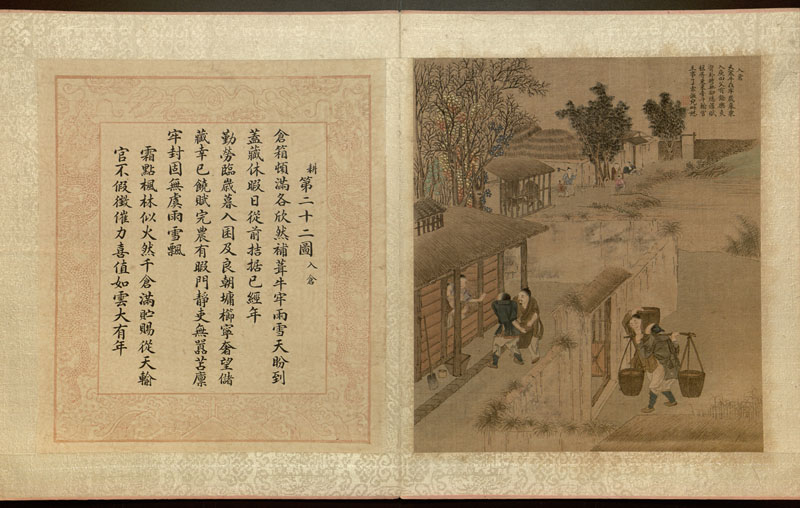 耕 第二十二圖 入倉
倉箱頓滿各欣然補葺牛牢雨雪天盼到
蓋藏休暇日從前拮据已經年
勤勞臨歲暮入囷及良朝墉櫛寧奢望儲
藏幸已饒賦完農有暇門靜吏無囂苫廩
牢封固無虞雨雪飄
霜點楓林似火然千倉滿貯賜從天輸
官不假徵催力喜值如雲大有年
入倉
天寒牛在牢歲暮粟
入庾田父有餘樂炙